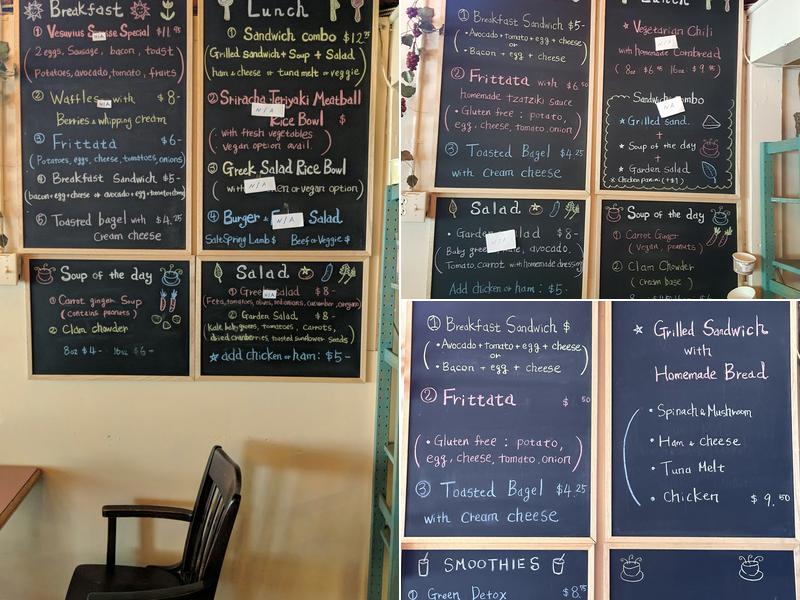 Breakfast
① Vesuvius Special $11.95
N/A
2 eggs, Sausage, bacon, toast
Potatoes, avocado, tomato, fruits)
② Waffles with $8-
N/A
Berries & whipping cream
③ Frittata $6-
(Potatoes, eggs, cheese, tomatoes, onions)
④ Breakfast Sandwich $5-
(bacon+egg+cheese or avocado+egg+tomato+cheese)
⑤ Toasted bagel with $4.25
Cream cheese
Lunch
① Sandwich combo $12.75
(Grilled sandwich + Soup + Salad)
ham & cheese or tuna melt or veggie)
② Sriracha Teriyaki Meatball
N/A
Rice Bowl $
(with fresh vegetables
vegan option avail.)
③ Greek Salad Rice Bowl
(with or vegan option)
N/A
④ Burger Salad
N/A
SaltSpring Lamb $ Beef or Veggie $
Soup of the day
① Carrot ginger Soup
(contains peanuts)
② Clam chowder
8oz $4- 16oz $6-
Salad
① Greek Salad $8-
N/A
(Feta, tomatoes, olives, red onions, cucumber, oregano)
② Garden Salad $8-
(Kale, baby greens, tomatoes, carrots,
dried cranberries, toasted sunflower seeds)
☆ add chicken or ham: $5-
① Breakfast Sandwich $5-
(• Avocado+tomato+egg+cheese
or
• Bacon + egg + cheese)
② Frittata with $6.50
homemade tzatziki sauce
(• Gluten free : potato,
egg, cheese, tomato, onion)
③ Toasted Bagel $4.25
with Cream cheese
Lunch
★ Vegetarian Chili
N/A
with homemade Cornbread
(8oz $6.95 16oz $9.95)
Sandwich Combo
N/A
★ Grilled Sand.
+
★ Soup of the day
+
★ Garden Salad
* Chicken panini (+$1)
Salad
• Garden Salad $8-
Baby green, kale, avocado,
Tomato, carrot with homemade dressing
Add chicken or ham : $5-
Soup of the day
① Carrot Ginger
(vegan, peanuts)
② Clam Chowder
(cream base)
① Breakfast Sandwich $
(• Avocado+tomato+egg+cheese
or
• Bacon + egg + cheese)
② Frittata $ 50
(• Gluten free : potato,
egg, cheese, tomato, onion)
③ Toasted Bagel $4.25
with Cream cheese
★ Grilled Sandwich
with
Homemade Bread
• Spinach & Mushroom
• Ham & cheese
• Tuna Melt
• Chicken $9.50
SMOOTHIES
① Green Detox $8.75